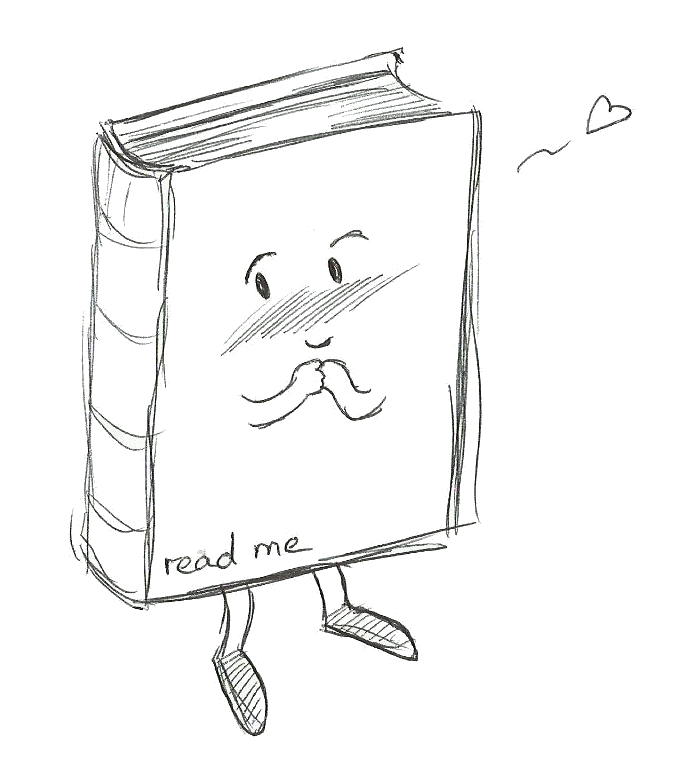 read me